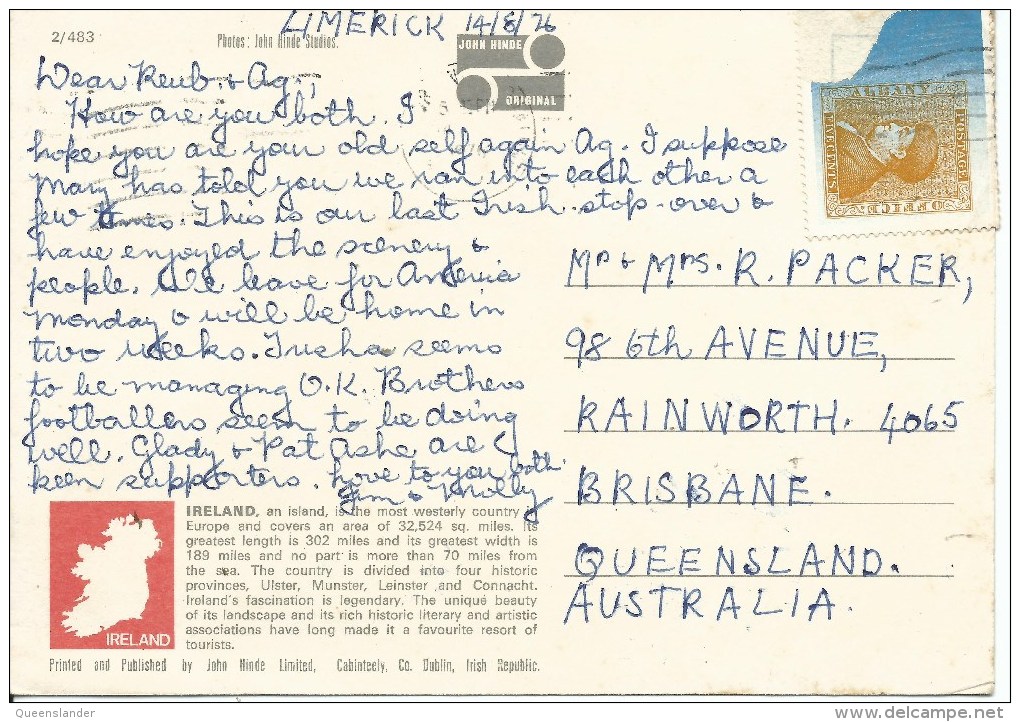 LIMERICK 14/8/76
2/483
Photos: John Hinde Studios.
JOHN HINDE
ORIGINAL
Dear Reub. & Ag.,
How are you both. I
hope you are your old self again Ag. I suppose
Mary has told you we ran into each other a
few times. This is our last Irish stop-over &
have enjoyed the scenery &
people. We leave for America
Monday & will be home in
two weeks. Trisha seems
to be managing O.K. Brothers
footballers seem to be doing
well. Glady & Pat Ashe are
keen supporters. Love to you both.
Jim & Molly
ALBANY
FIVE CENTS
POSTAGE
OFFICE
Mr & Mrs. R. PACKER,
98 6th AVENUE,
RAINWORTH. 4065
BRISBANE.
QUEENSLAND.
AUSTRALIA.
IRELAND
IRELAND, an island, is the most westerly country in
Europe and covers an area of 32,524 sq. miles. Its
greatest length is 302 miles and its greatest width is
189 miles and no part is more than 70 miles from
the sea. The country is divided into four historic
provinces, Ulster, Munster, Leinster and Connacht.
Ireland's fascination is legendary. The unique beauty
of its landscape and its rich historic literary and artistic
associations have long made it a favourite resort of
tourists.
Printed and Published by John Hinde Limited, Cabinteely, Co. Dublin, Irish Republic.
Queenslander
www.delcampe.net